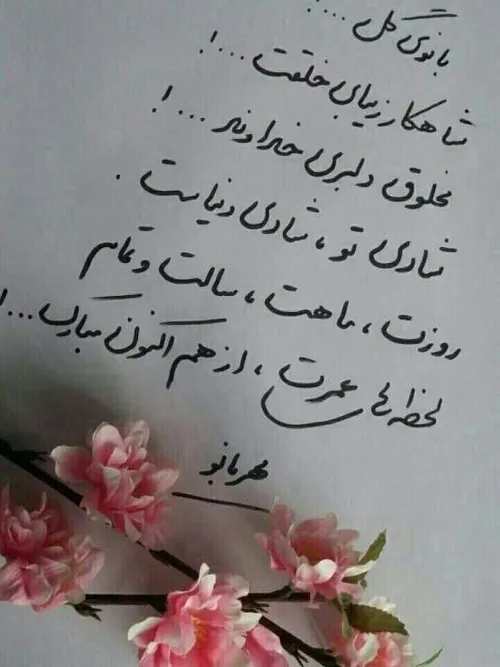 بانوی گل ....!
شاهکار زیبای خلقت ...!
مخلوق دلبری خداوند ...!
شادی تو ، شادی دنیاست .
روزت ، ماهت ، سالت و تمام
لحظه های عمرت ، از هم اکنون مبارک ...!
مهربانو